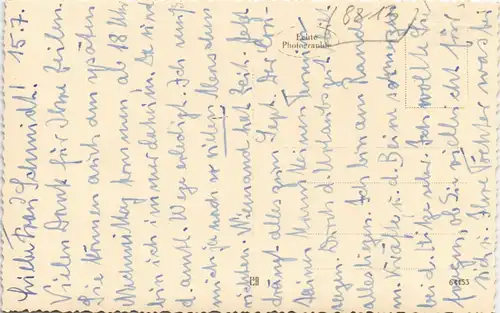 Liebe Frau Schmidt! 15.7.
Vielen Dank für Ihre Zeilen.
Sie können auch am späten
Nachmittag kommen, ab 18 Uhr
bin ich immer daheim. Da sind
d. amtl. Wege erledigt. Ich muß
mich ja nach so vielen Menschen
richten. Niemand hat Zeit. Jetzt
drängt alles zum Sept. Der
keinen Termin
wegen. Durch d. Urlaubszeit
alles liegen. Ich bin am Rande
m. Kräfte u. d. Beine
bei d. Hitze sehr. Ich wollte Sie
fragen, ob Sie vielleicht für
sich u. Ihre Töchter was
Echte
Photographie
8813
64153